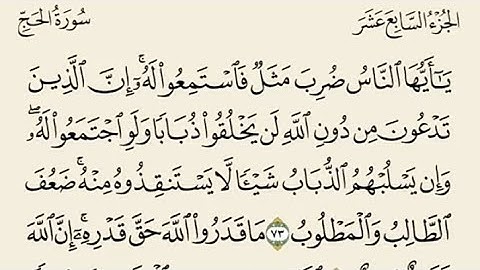 سُورَةُ الحَجِّ
الجُزْءُ السَّابِعَ عَشَرَ
يَٰٓأَيُّهَا ٱلنَّاسُ ضُرِبَ مَثَلٌ فَٱسْتَمِعُوا۟ لَهُۥٓ ۚ إِنَّ ٱلَّذِينَ
تَدْعُونَ مِن دُونِ ٱللَّهِ لَن يَخْلُقُوا۟ ذُبَابًا وَلَوِ ٱجْتَمَعُوا۟ لَهُۥ ۖ
وَإِن يَسْلُبْهُمُ ٱلذُّبَابُ شَيْـًٔا لَّا يَسْتَنقِذُوهُ مِنْهُ ۚ ضَعُفَ
ٱلطَّالِبُ وَٱلْمَطْلُوبُ ٧٣ مَا قَدَرُوا۟ ٱللَّهَ حَقَّ قَدْرِهِۦٓ ۚ إِنَّ ٱللَّهَ